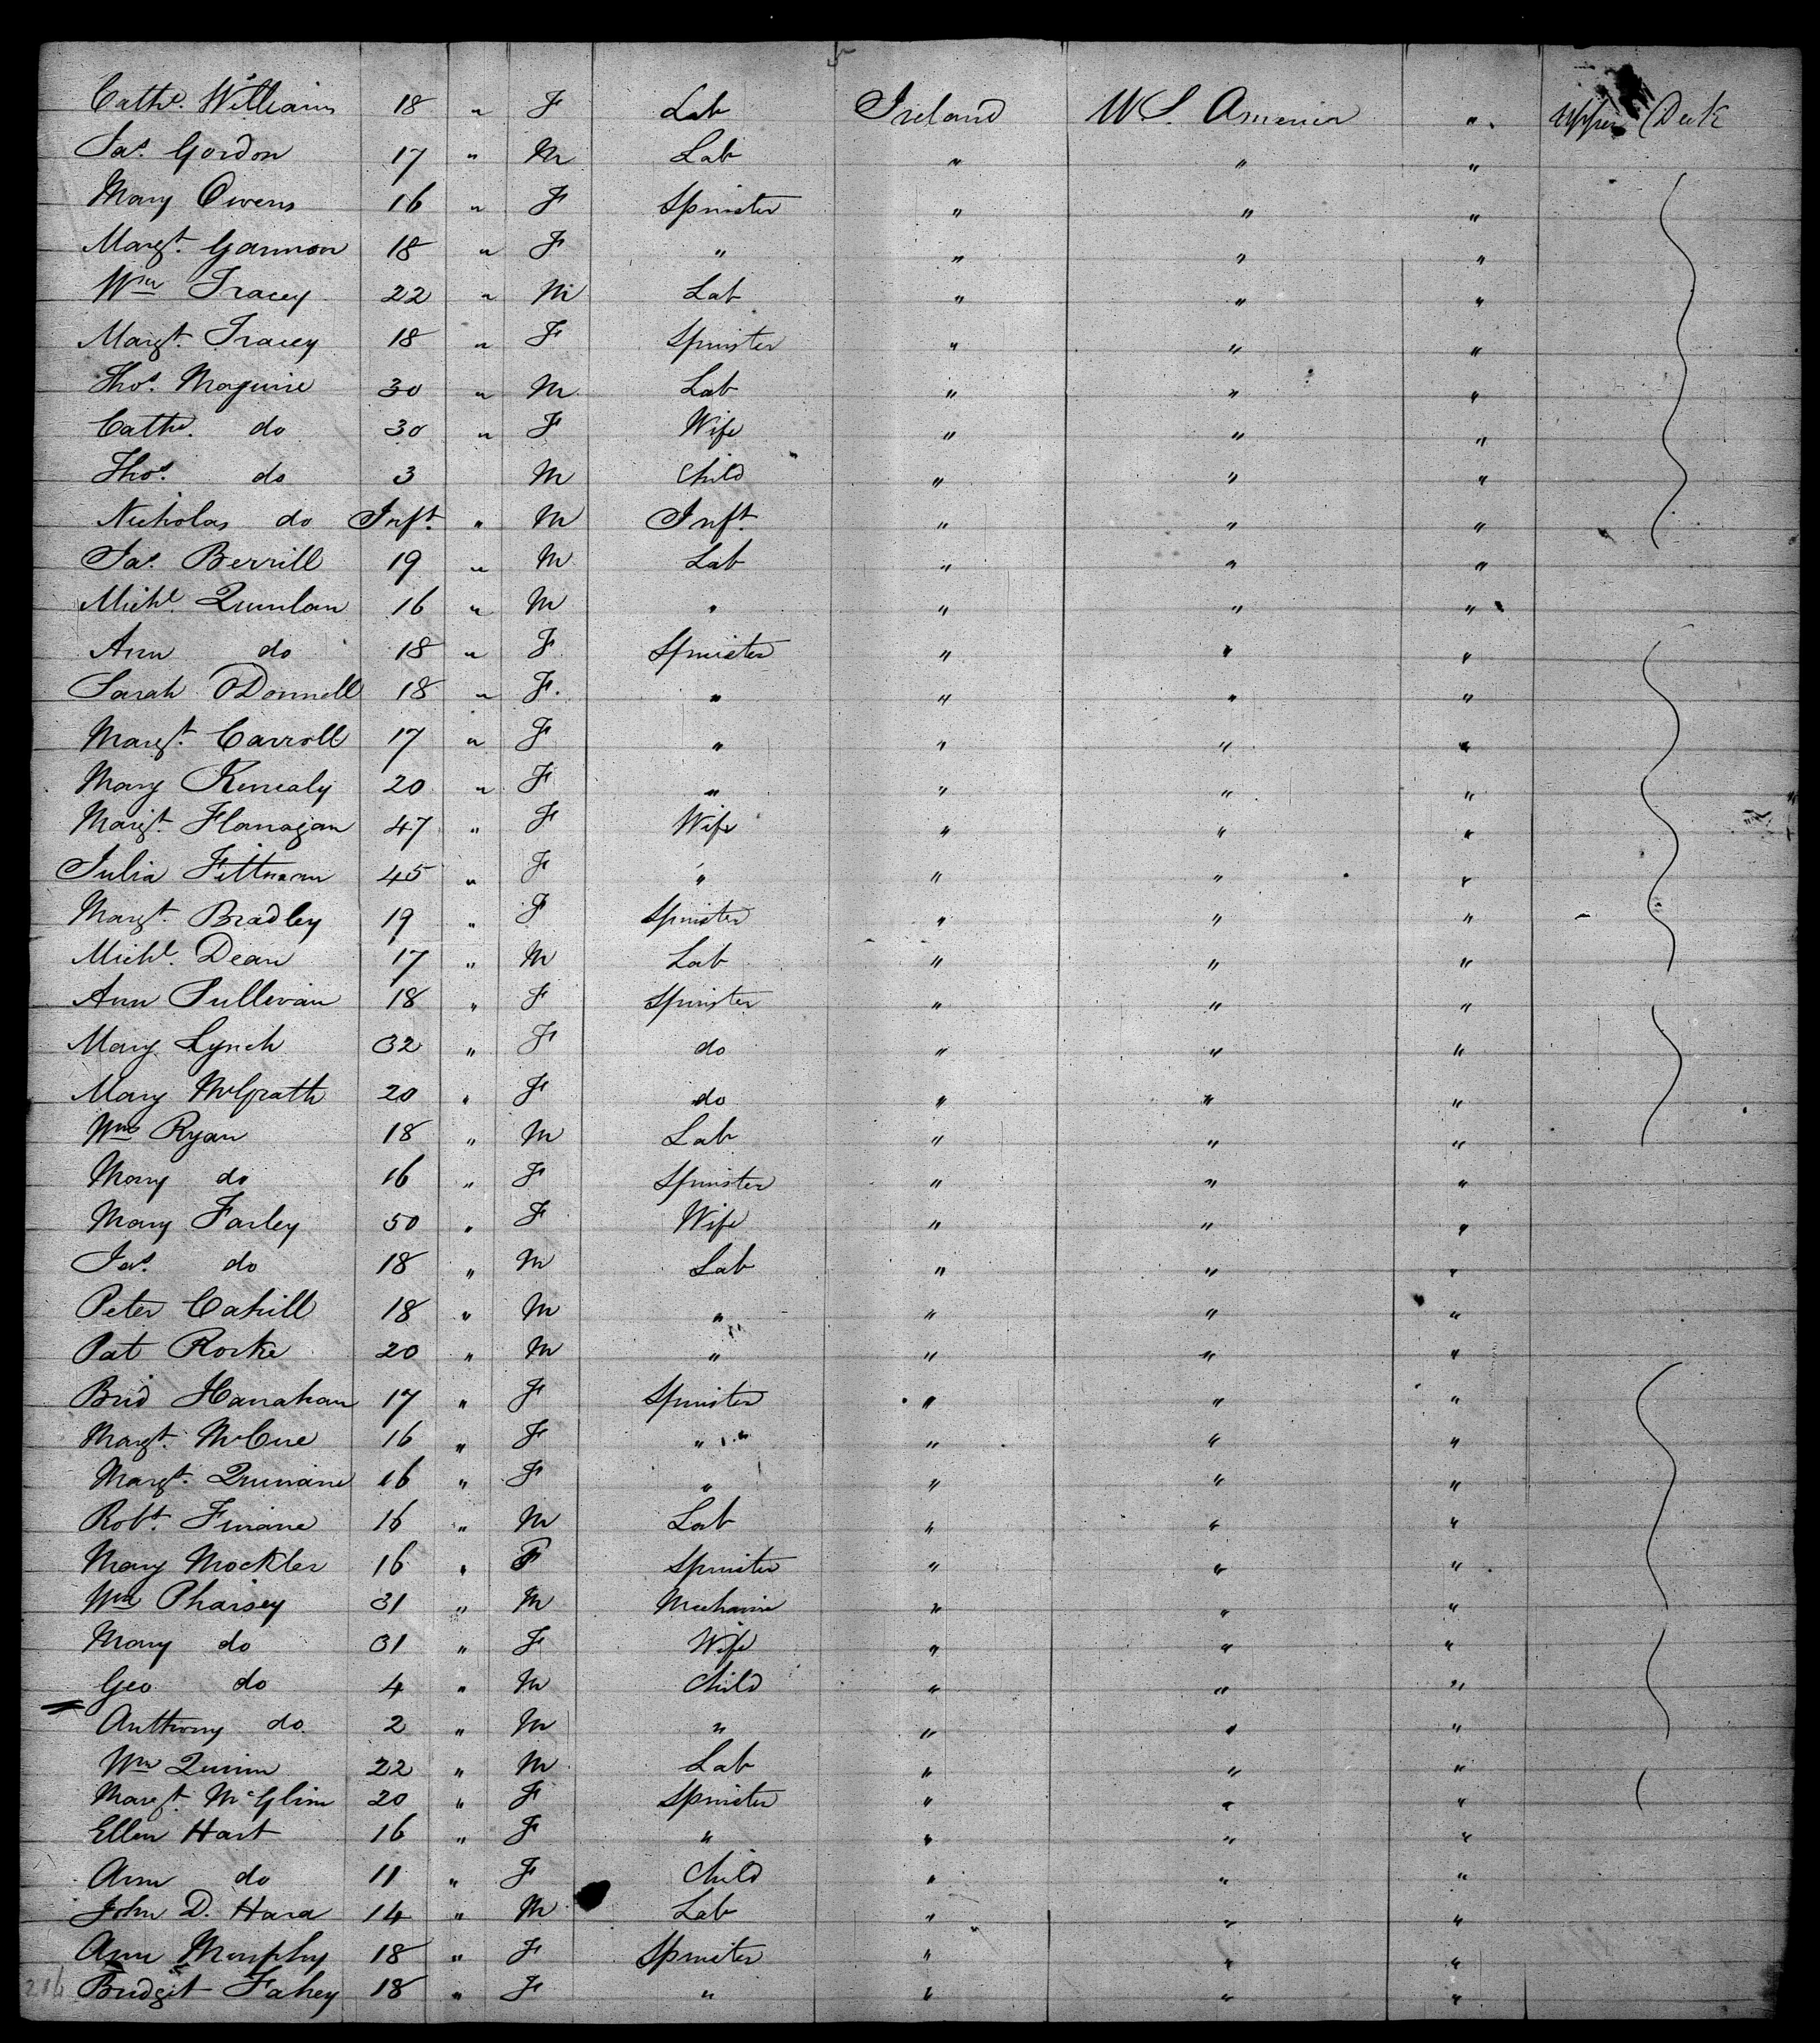 5
Cathe. Williams 18 " F Lab Ireland U S. America " Upper Deck
Jas. Gordon 17 " M Lab " " "
Mary Owens 16 " F Spinster " " "
Margt. Gannon 18 " F " " " "
Wm Tracey 22 " M Lab " " "
Margt. Tracey 18 " F Spinster " " "
Thos. Maguire 30 " M Lab " " "
Cathe. do 30 " F Wife " " "
Thos. do 3 M Child " " "
Nicholas do Inft. " M Inft. " " "
Jas. Berrill 19 " M Lab " " "
Michl. Quinlan 16 " M " " " "
Ann do 18 " F Spinster " " "
Sarah ODonnell 18 " F. " " " "
Margt. Carroll 17 " F " " " "
Mary Kenealy 20 " F " " " "
Margt. Flanagan 47 " F Wife " " "
Julia 45 " F " " " "
Margt. Bradley 19 " F Spinster " " "
Michl. Dean 17 " M Lab " " "
Ann Sullivan 18 " F Spinster " " "
Mary Lynch 32 " F do " " "
Mary McGrath 20 " F do " " "
Wm Ryan 18 " M Lab " " "
Mary do 16 " F Spinster " " "
Mary Farley 50 " F Wife " " "
Jas. do 18 " M Lab " " "
Peter Cahill 18 " M " " " "
Pat Rorke 20 " M " " " "
Brid Hanahan 17 " F Spinster " " "
Margt. McCue 16 " F " " " "
Margt. Quinane 16 " F " " " "
Robt. Finane 16 " M Lab " " "
Mary Mockler 16 " F Spinster " " "
Wm Pharsey 31 " M Mechanic " " "
Mary do 31 " F Wife " " "
Geo do 4 " M Child " " "
Anthony do. 2 " M " " " "
Wm Quinn 22 " M Lab " " "
Margt. McGlinn 20 " F Spinster " " "
Ellen Hart 16 " F " " " "
Ann do 11 " F Child " " "
John D. Hara 14 " M Lab " " "
Ann Murphy 18 " F Spinster " " "
216 Bridget Fahey 18 " F " " " "